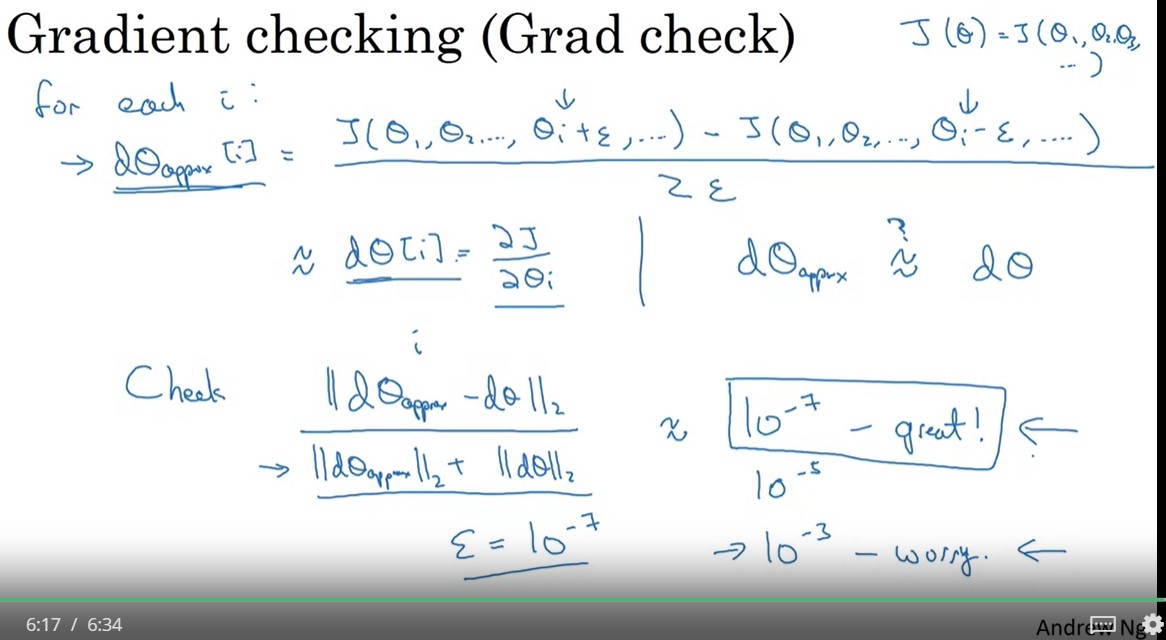 Gradient checking (Grad check)
J(θ) = J(θ₁, θ₂, θ₃, ...)
for each i:
→ dθapprox[i] = J(θ₁, θ₂, ..., θi + ε, ...) - J(θ₁, θ₂, ..., θi - ε, ....)
2ε
≈ dθ[i] = ∂J/∂θi | dθapprox ≈? dθ
i
Check ||dθapprox - dθ||₂ ≈ 10⁻⁷ - great! ←
→ ||dθapprox||₂ + ||dθ||₂
10⁻⁵
ε = 10⁻⁷ → 10⁻³ - worry. ←
6:17 / 6:34
Andrew Ng